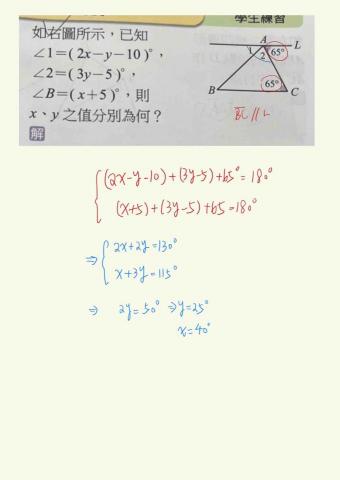 學生練習
如右圖所示，已知
∠1=(2x−y−10)°，
∠2=(3y−5)°，
∠B=(x+5)°，則
x、y 之值分別為何？
解
A
L
1
2
65°
B
65°
C
BC // L
(2x-y-10)+(3y-5)+65°=180°
(x+5)+(3y-5)+65=180°
⇒ 2x+2y=130°
x+3y=115°
⇒ 2y=50° ⇒y=25°
x=40°